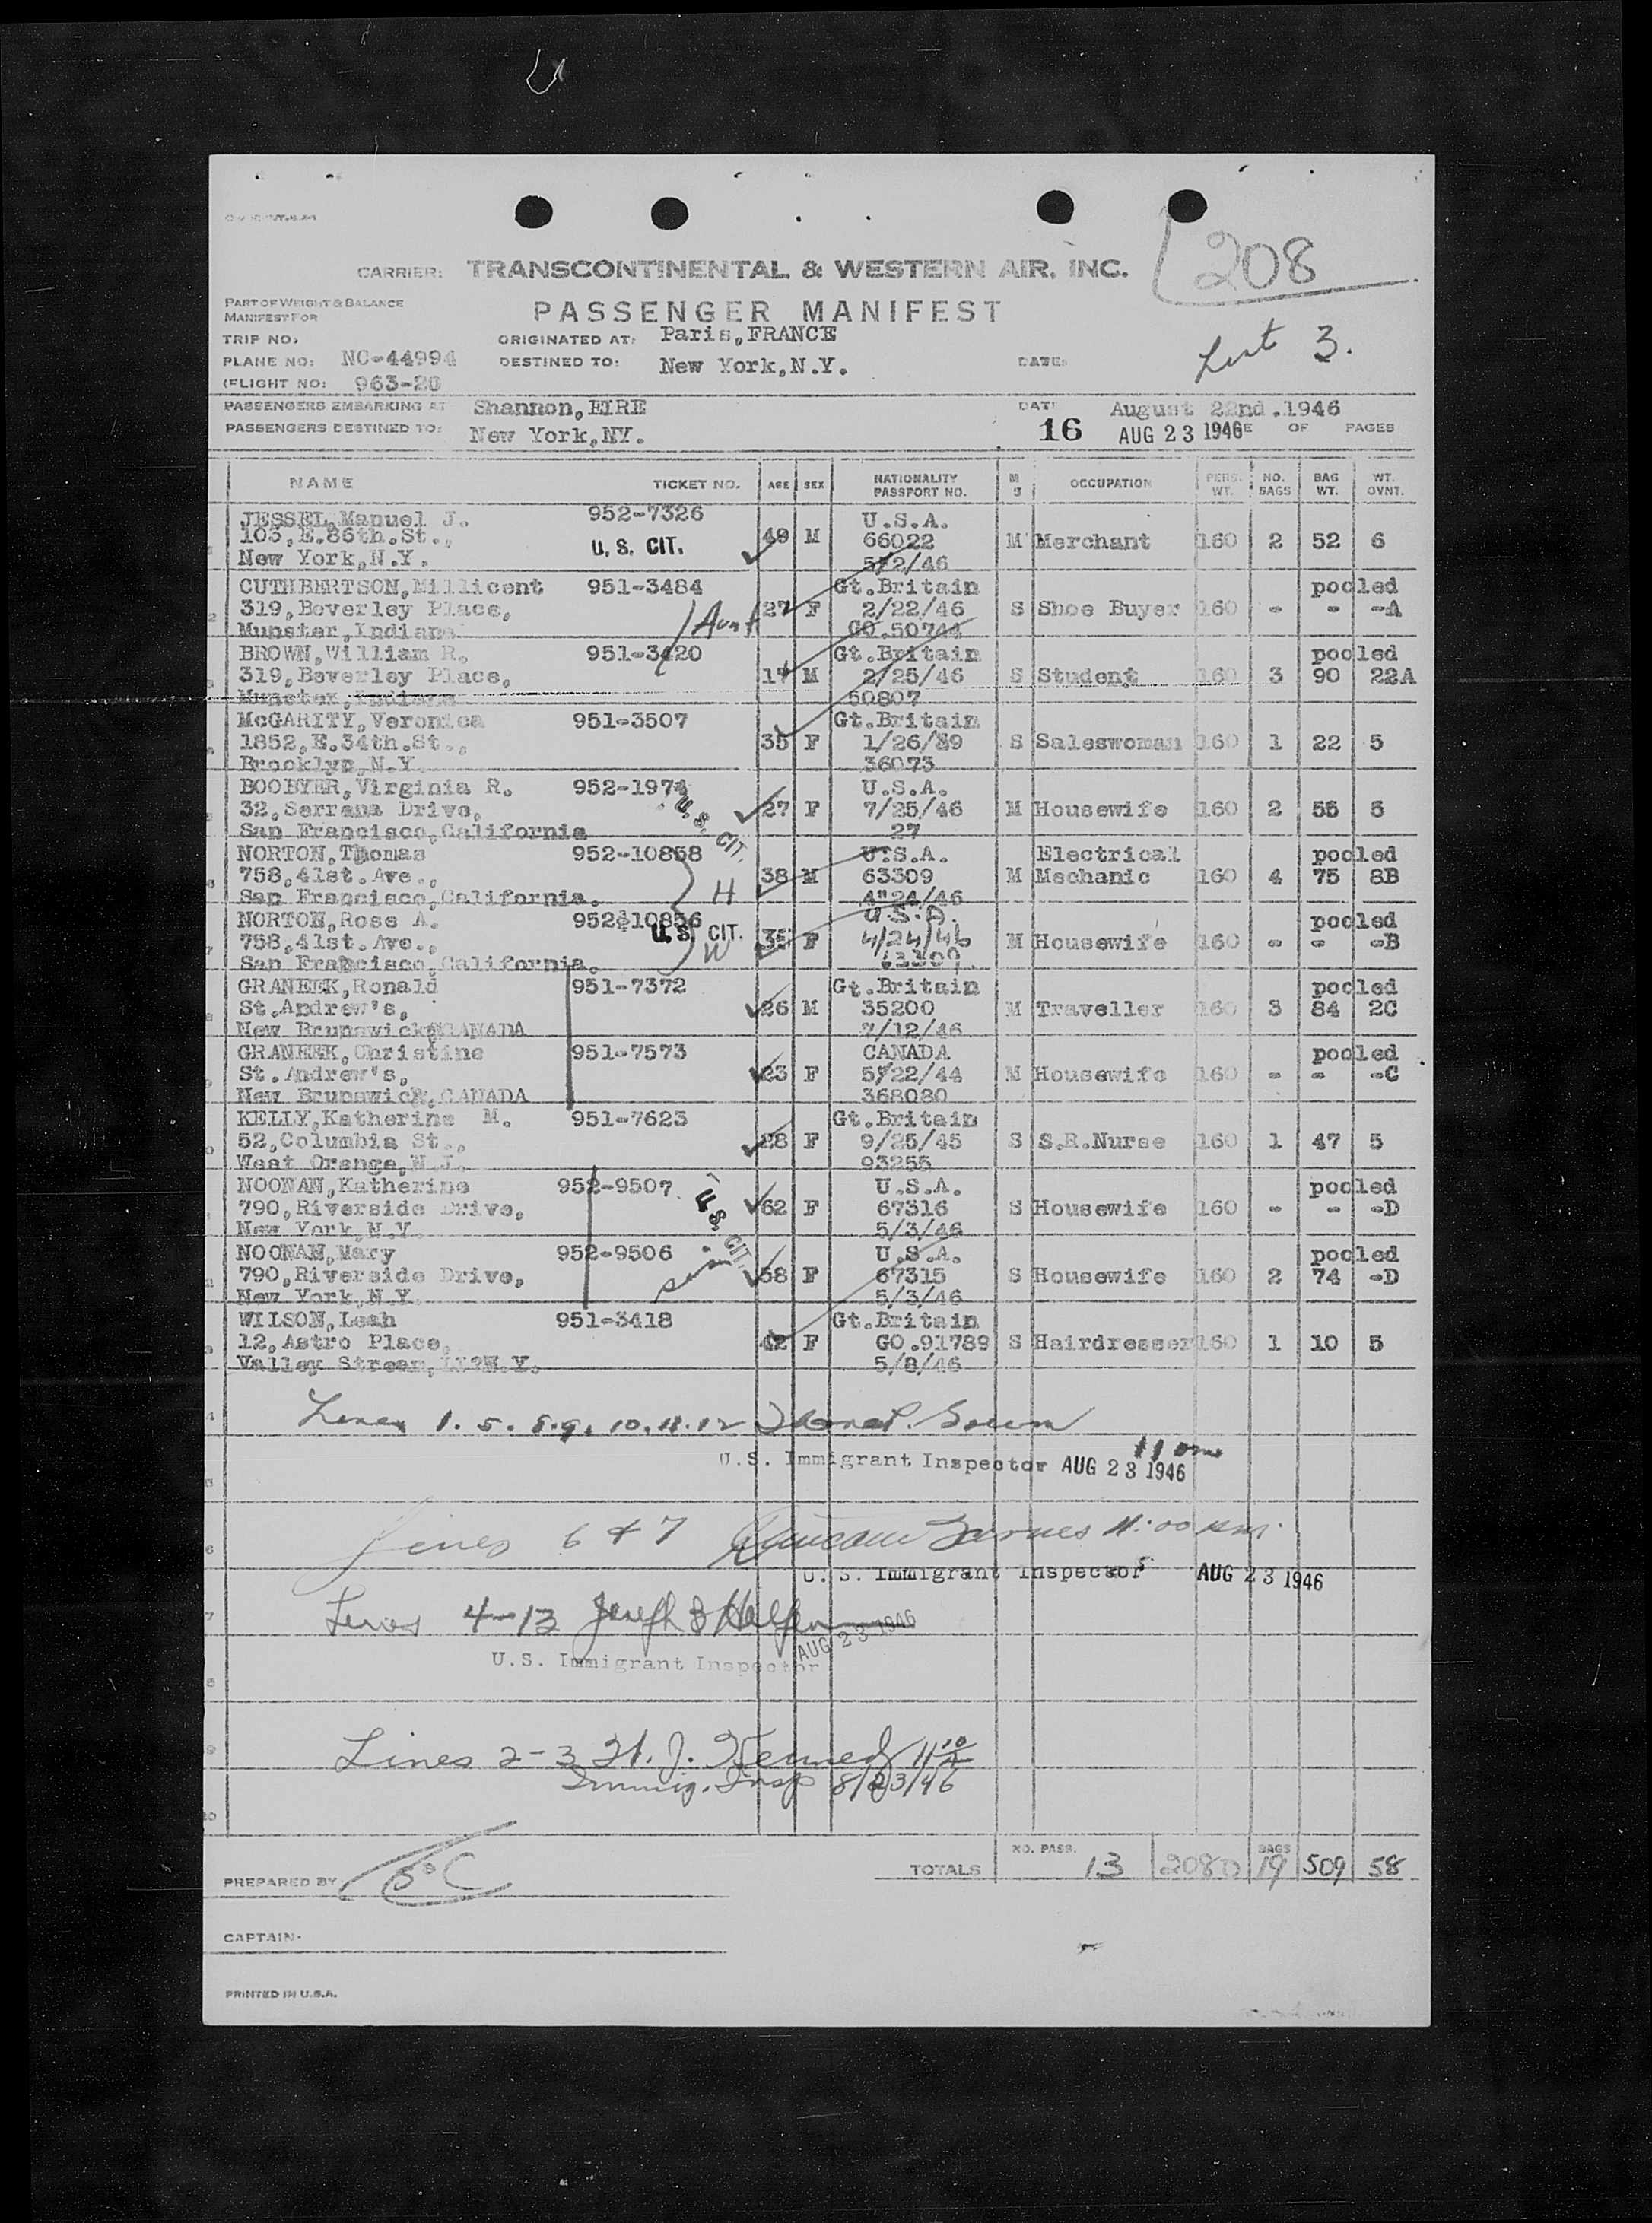 208
CARRIER: TRANSCONTINENTAL & WESTERN AIR, INC.
PART OF WEIGHT & BALANCE
MANIFEST FOR
PASSENGER MANIFEST
TRIP NO. ORIGINATED AT: Paris,FRANCE
List 3.
PLANE NO: NC-44994 DESTINED TO: New York,N.Y. DATE:
(FLIGHT NO: 963-20
PASSENGERS EMBARKING AT Shannon,EIRE DATE August 22nd.1946
PASSENGERS DESTINED TO: New York,NY. 16 AUG 23 1946 E OF PAGES
NAME TICKET NO. AGE SEX NATIONALITY PASSPORT NO. M S OCCUPATION PERS. WT. NO. BAGS BAG WT. WT. OVNT.
JESSEL,Manuel J. 952-7326 U.S.A.
103,E.86th.St., U. S. CIT. 49 M 66022 M Merchant 160 2 52 6
New York,N.Y. 5/2/46
CUTHBERTSON,Millicent 951-3484 Gt.Britain pooled
319,Beverley Place, Aunt 27 F 2/22/46 S Shoe Buyer 160 - - -A
Munster,Indiana GO.50744
BROWN,William R. 951-3420 Gt.Britain pooled
319,Beverley Place, 17 M 2/25/46 S Student 160 3 90 22A
Munster,Indiana 50807
McGARITY,Veronica 951-3507 Gt.Britain
1852,E.34th.St., 35 F 1/26/39 S Saleswoman 160 1 22 5
Brooklyn,N.Y. 36073
BOOBYER,Virginia R. 952-1974 U.S.A.
32,Serrana Drive, U. S. CIT. 27 F 7/25/46 M Housewife 160 2 55 5
San Francisco,California 27
NORTON,Thomas 952-10858 U.S.A. Electrical pooled
758,41st.Ave., H 38 M 63309 M Mechanic 160 4 75 8B
San Francisco,California. 4"24/46
NORTON,Rose A. 952-10856 U.S.A. pooled
758,41st.Ave., U.S. CIT. W 35 F 4/24/46 M Housewife 160 - - -B
San Francisco,California. 63309
GRANEEK,Ronald 951-7372 Gt.Britain pooled
St.Andrew's, 26 M 35200 M Traveller 160 3 84 2C
New Brunswick,CANADA 7/12/46
GRANEEK,Christine 951-7573 CANADA pooled
St.Andrew's, 23 F 5/22/44 M Housewife 160 - - -C
New Brunswick,CANADA 368080
KELLY,Katherine M. 951-7623 Gt.Britain
52,Columbia St., 28 F 9/25/45 S S.R.Nurse 160 1 47 5
West Orange,N.J. 93255
NOONAN,Katherine 952-9507 U.S.A. pooled
790,Riverside Drive, U. S. CIT. 62 F 67316 S Housewife 160 - - -D
New York,N.Y. 5/3/46
NOONAN,Mary 952-9506 U.S.A. pooled
790,Riverside Drive, 58 F 67315 S Housewife 160 2 74 -D
New York,N.Y. 5/3/46
WILSON,Leah 951-3418 Gt.Britain
12,Astro Place, 42 F GO.91789 S Hairdresser 160 1 10 5
Valley Stream, N.Y. 5/8/46
Lines 1. 5. 8.9. 10.11.12
11 am
U.S. Immigrant Inspector AUG 23 1946
Lines 6 & 7 Duncan Barnes 11:00 am.
U.S. Immigrant Inspector AUG 23 1946
Lines 4-13 Joseph B Halfen AUG 23 1946
U.S. Immigrant Inspector
Lines 2-3 H. J. Kennedy 11 10 A
Immig. Insp 8/23/46
TOTALS NO. PASS. 13 2080 BAGS 19 509 58
PREPARED BY
CAPTAIN-
PRINTED IN U.S.A.